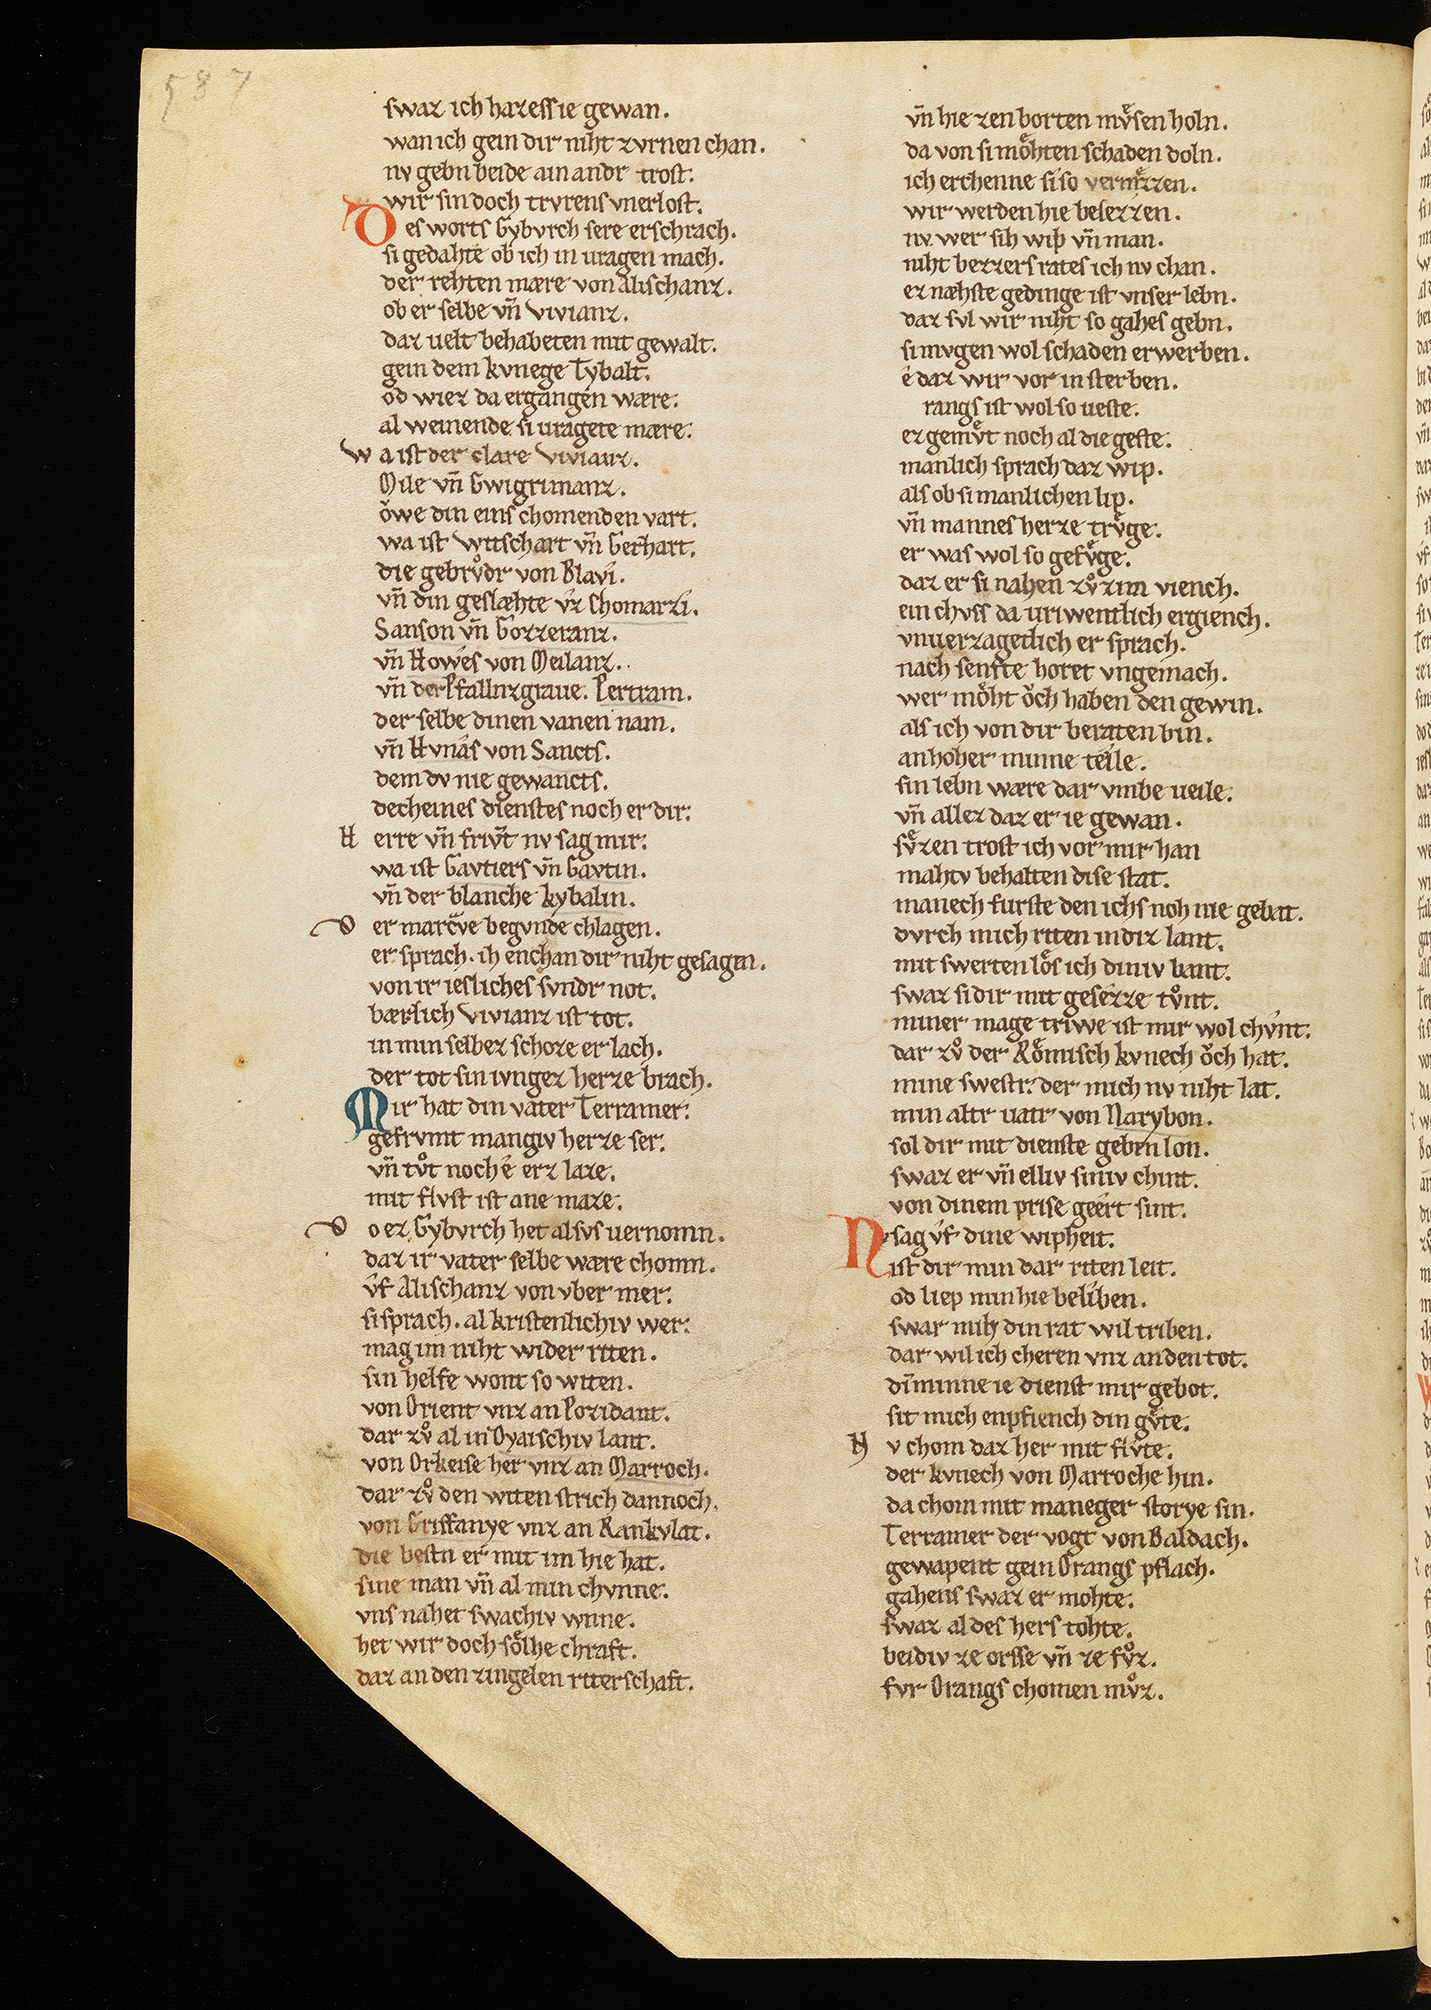 587
swaz ich hazessie gewan.
wan ich gein dir niht zvrnen chan.
nv gebn beide ain andr trost.
wir sin doch trvrens vnerlost.
Des worts Gybvrch sere erschrach.
si gedahte ob ich in uragen mach.
der rehten mære von Alischanz.
ob er selbe vn̄ Vivianz.
daz uelt behabeten mit gewalt.
gein dem kvnege Tybalt.
od wiez da ergangen wære.
al weinende si uragete mære.
Wa ist der clare Vivianz.
Mile vn̄ Gwigrimanz.
ǒwe din eins chomenden vart.
wa ist Witschart vn̄ Gerhart.
die gebrv̊dr von Blavi.
vn̄ din geslæhte v́z Chomarzi.
Sanson vn̄ Gozzeranz.
vn̄ Howes von Meilanz.
vn̄ der Pfallnzgraue. Pertram.
der selbe dinen vanen nam.
vn̄ Hvnas von Sancts.
dem dv nie gewancts.
decheines dienstes noch er dir.
Herre vn̄ frivt nv sag mir.
wa ist Gavtiers vn̄ Gavtin.
vn̄ der blanche kybalin.
Der marcve begvnde chlagen.
er sprach. ih enchan dir niht gesagin.
von ir iesliches svndr not.
bærlich Vivianz ist tot.
in min selbez schoze er lach.
der tot sin ivngez herze brach.
Mir hat din vater Terramer.
gefrvmt mangiv herze ser.
vn̄ tv̊t noch é erz laze.
mit flvst ist ane maze.
Do ez Gybvrch het alsvs uernomn.
daz ir vater selbe wære chomn.
v́f Alischanz von vber mer.
si sprach. al kristenlichiv wer.
mag im niht wider riten.
sin helfe wont so witen.
von Orient vnz an Pozidant.
dar zv̊ al in Dyaischiv lant.
von Orkeise her vnz an Marroch.
dar zv̊ den witen strich dannoch.
von Griffanye vnz an Rankvlat.
die bestn er mit im hie hat.
sine man vn̄ al min chvnne.
vns nahet swachiv wnne.
het wir doch sölhe chraft.
daz an den zingelen riterschaft.
vn̄ hie zen borten mv̊sen holn.
da von si möhten schaden doln.
ich erchenne si so vermezzen.
wir werden hie besezzen.
nv wer sih wip vn̄ man.
niht bezzers rates ich nv chan.
ez næhste gedinge ist vnser lebn.
daz svl wir niht so gahes gebn.
si mvgen wol schaden erwerben.
é daz wir vor in sterben.
rangs ist wol so ueste.
ez gemv̊t noch al die geste.
manlich sprach daz wip.
als ob si manlichen lip.
vn̄ mannes herze trv̊ge.
er was wol so gefv̊ge.
daz er si nahen zv̊zim viench.
ein chvss da uriwentlich ergiench.
vnuerzagetlich er sprach.
nach senfte horet vngemach.
wer möht ǒch haben den gewin.
als ich von dir beraten bin.
an hoher minne teile.
sin lebn wære dar vmbe ueile.
vn̄ allez daz er ie gewan.
sv̊zen trost ich vor mir han
mahtv behalten dise stat.
manech furste den ichs noh nie gebat.
dvrch mich riten indiz lant.
mit swerten lös ich diniv bant.
swaz si dir mit gesezze tv̊nt.
miner mage triwe ist mir wol chvnt.
dar zv̊ der Römisch kvnech ǒch hat.
mine swestr. der mich nv niht lat.
min altr uatr von Narybon.
sol dir mit dienste gebrn lon.
swaz er vn̄ elliv siniv chint.
von dinem prise geert sint.
Nv sag v́f dine wipheit.
ist dir min dar riten leit.
od liep min hie beliben.
swar mih din rat wil triben.
dar wil ich cheren vnz an den tot.
din̄ minne ie dienst mir gebot.
sit mich enpfiench din gv̊te.
Nv chom daz her mit flv̊te.
der kvnech von Marroche hin.
da chom mit maneger storye sin.
Terramer der vogt von Baldach.
gewapent gein Orangs pflach.
gahens swaz er mohte.
swaz al des hers tohte.
beidiv ze orsse vn̄ ze fv̊z.
fvr Orangs chomen mv̊z.